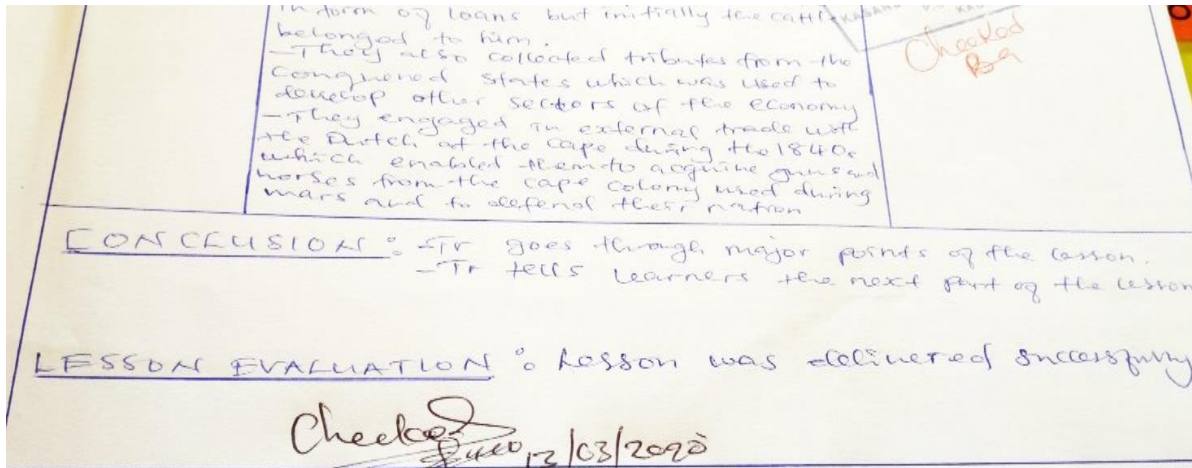 in form of loans but initially the cattle
belonged to him.
- They also collected tributes from the
conquered states which was used to
develop other sectors of the economy
- They engaged in external trade with
the Dutch at the cape during the 1840s
which enabled them to acquire guns and
horses from the cape colony used during
wars and to defend their nation
Checked
CONCLUSION: - Tr goes through major points of the lesson.
- Tr tells learners the next part of the lesson
LESSON EVALUATION: Lesson was delivered successfully
Checked